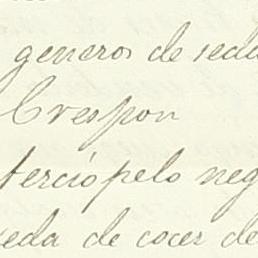 generos de seda
Crespon
terciópelo neg
seda de cocer de